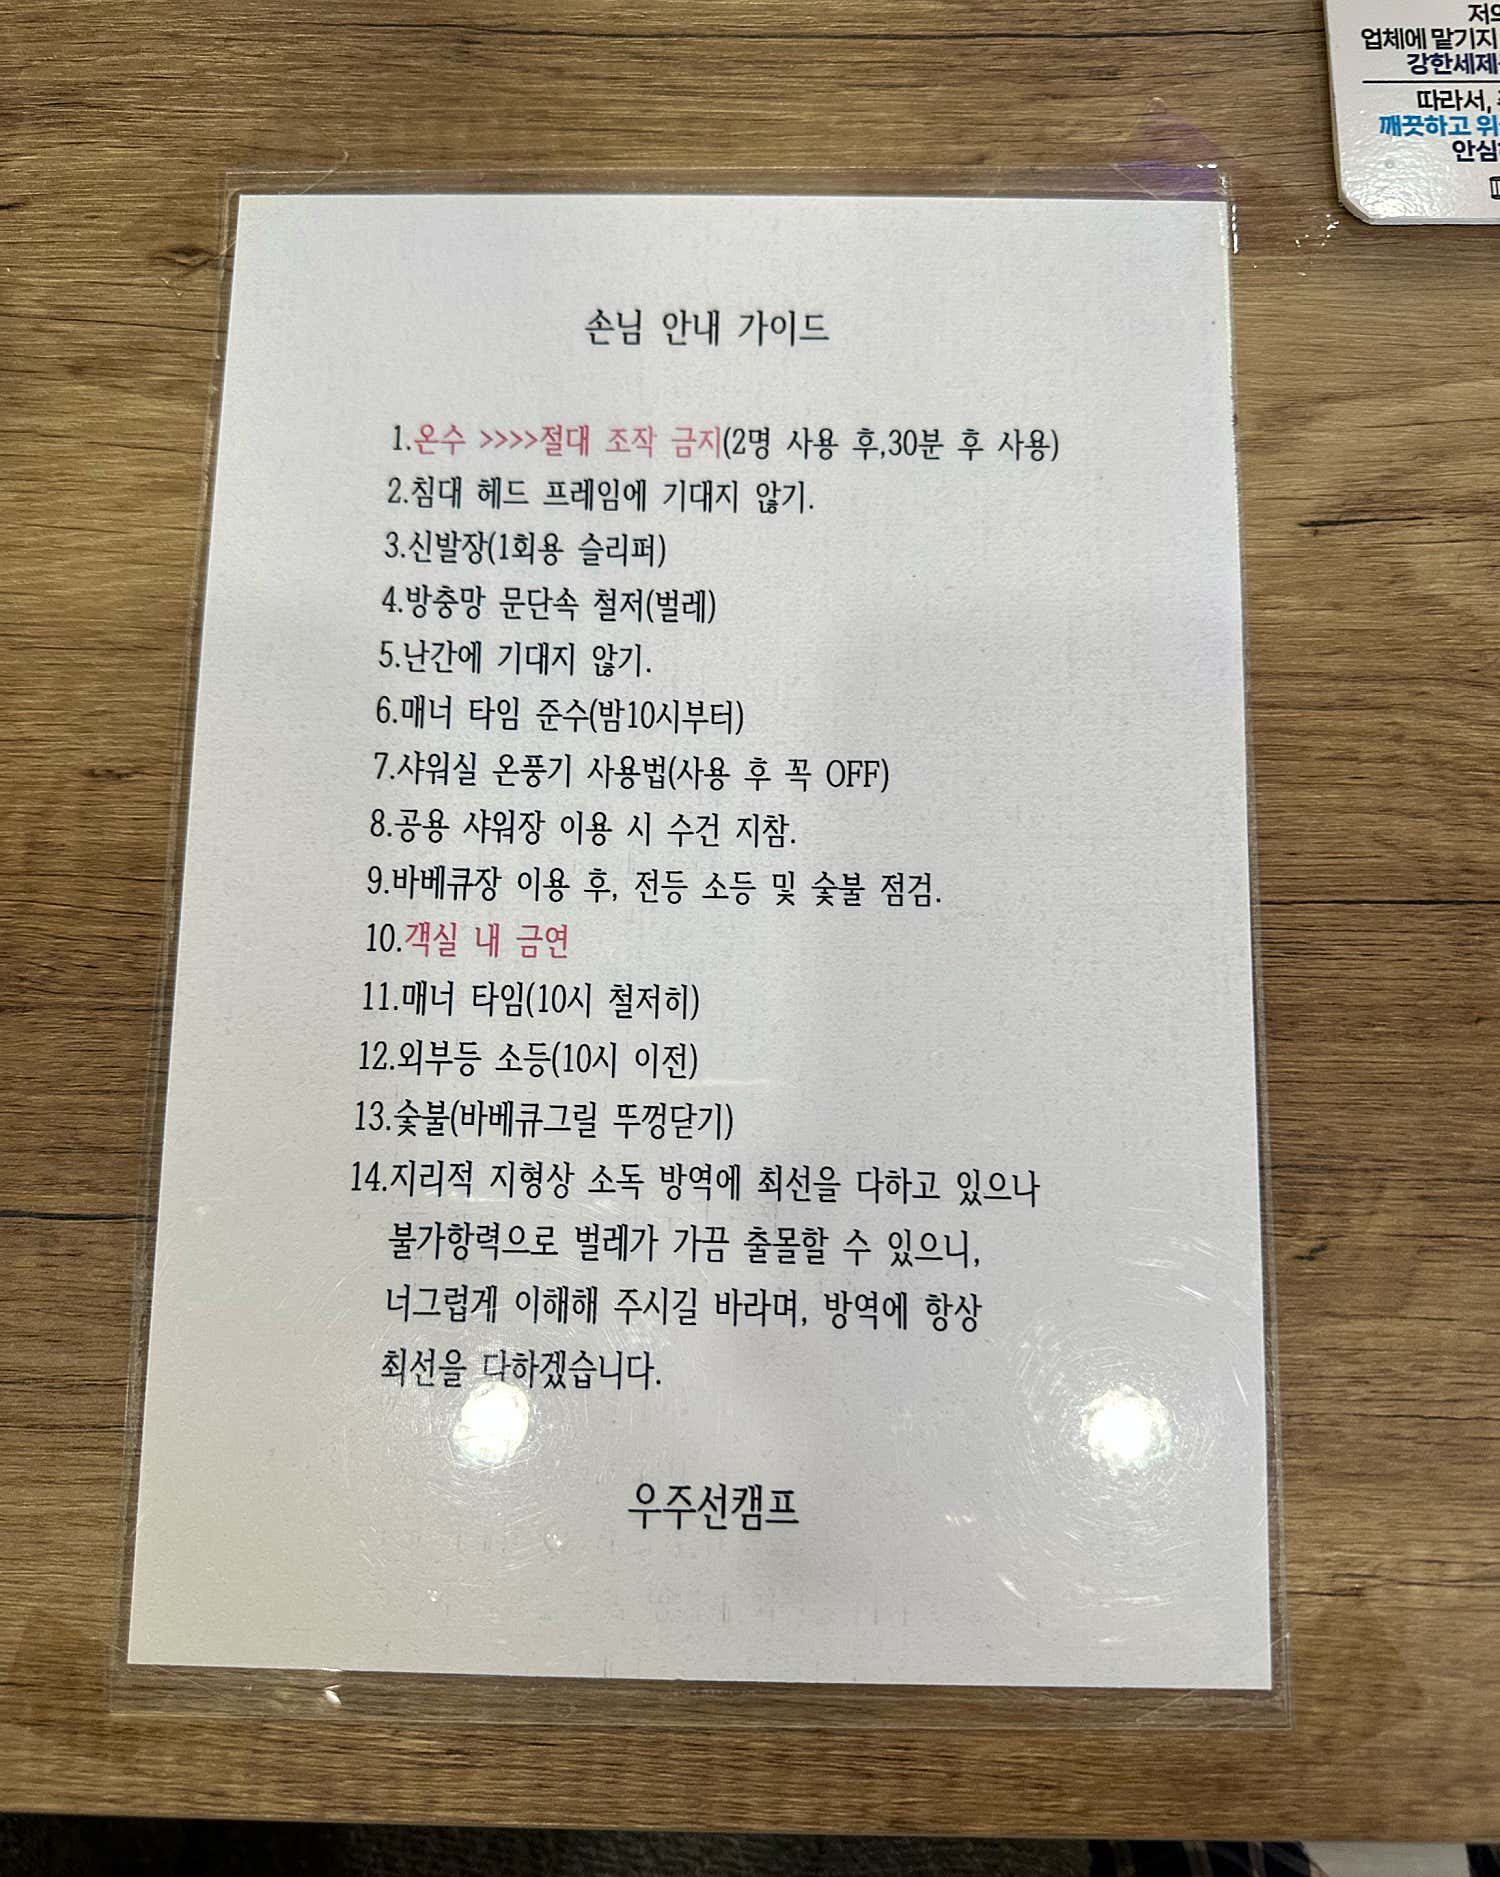 손님 안내 가이드
1.온수 >>>>절대 조작 금지(2명 사용 후,30분 후 사용)
2.침대 헤드 프레임에 기대지 않기.
3.신발장(1회용 슬리퍼)
4.방충망 문단속 철저(벌레)
5.난간에 기대지 않기.
6.매너 타임 준수(밤10시부터)
7.샤워실 온풍기 사용법(사용 후 꼭 OFF)
8.공용 샤워장 이용 시 수건 지참.
9.바베큐장 이용 후, 전등 소등 및 숯불 점검.
10.객실 내 금연
11.매너 타임(10시 철저히)
12.외부등 소등(10시 이전)
13.숯불(바베큐그릴 뚜껑닫기)
14.지리적 지형상 소독 방역에 최선을 다하고 있으나
불가항력으로 벌레가 가끔 출몰할 수 있으니,
너그럽게 이해해 주시길 바라며, 방역에 항상
최선을 다하겠습니다.
우주선캠프
업체에 맡기지
강한세제
따라서,
깨끗하고